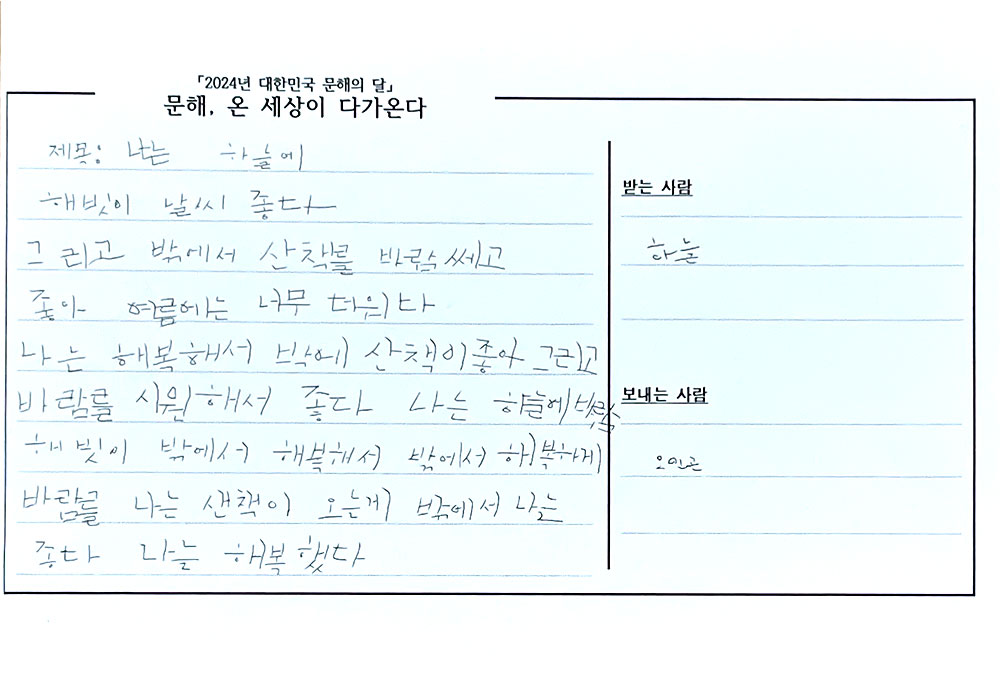 「2024년 대한민국 문해의 달」
문해, 온 세상이 다가온다
제목: 나는 하늘에
해빛이 날씨 좋다
그리고 밖에서 산책를 바람쎄고
좋아 여름에는 너무 더웁다
나는 해복해서 밖에 산책이좋아 그리고
바람를 시원해서 좋다 나는 하늘에 바람
해빛이 밖에서 해복해서 밖에서 해복하게
바람를 나는 산책이 오는게 밖에서 나는
좋다 나는 해복했다
받는 사람
하늘
보내는 사람